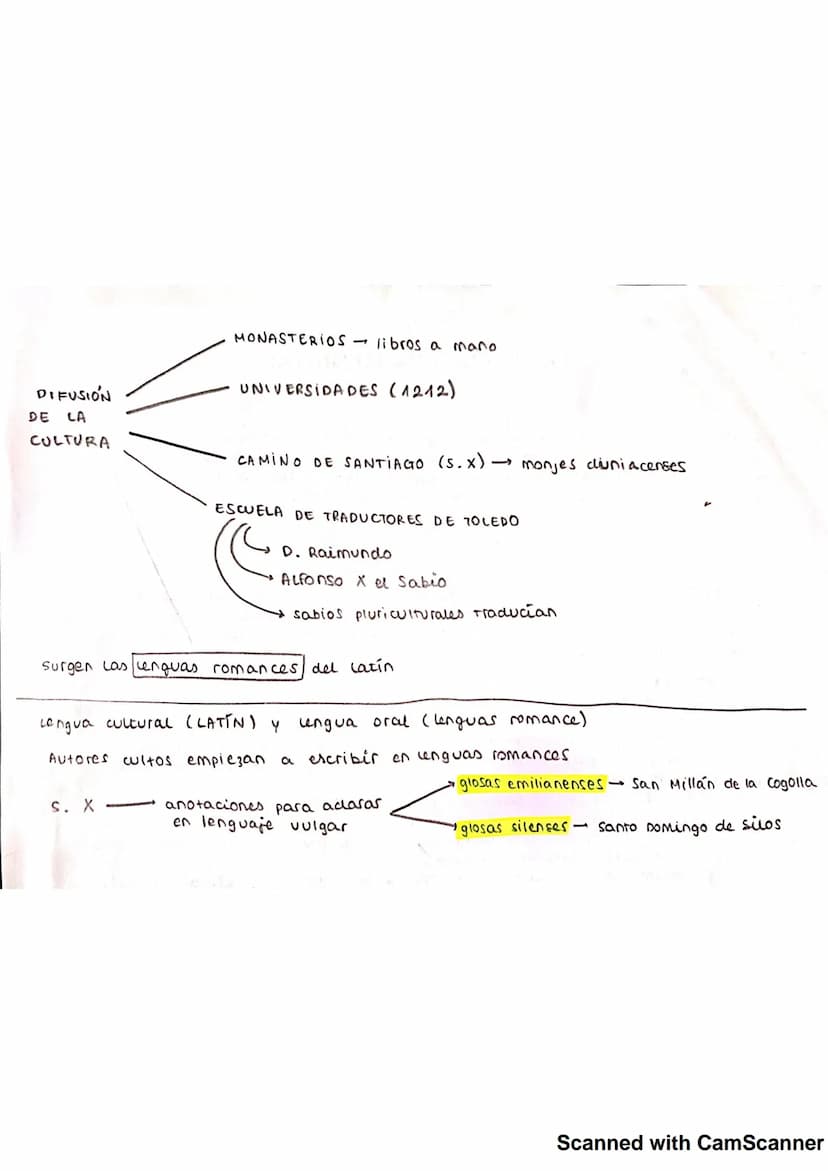 MONASTERIOS → libros a mano
DIFUSIÓN
DE LA
CULTURA
UNIVERSIDADES (1212)
CAMINO DE SANTIAGO (s. X) → monjes cluniacenses
ESCUELA DE TRADUCTORES DE TOLEDO
→ D. Raimundo
→ Alfonso X el Sabio
→ sabios pluriculturales traducían
surgen las lenguas romances del latín
Lengua cultural (LATÍN) y lengua oral (lenguas romance)
Autores cultos empiezan a escribir en lenguas romances
s. X → anotaciones para aclarar
en lenguaje vulgar
glosas emilianenses → San Millán de la Cogolla
glosas silenses → Santo Domingo de Silos
Scanned with CamScanner